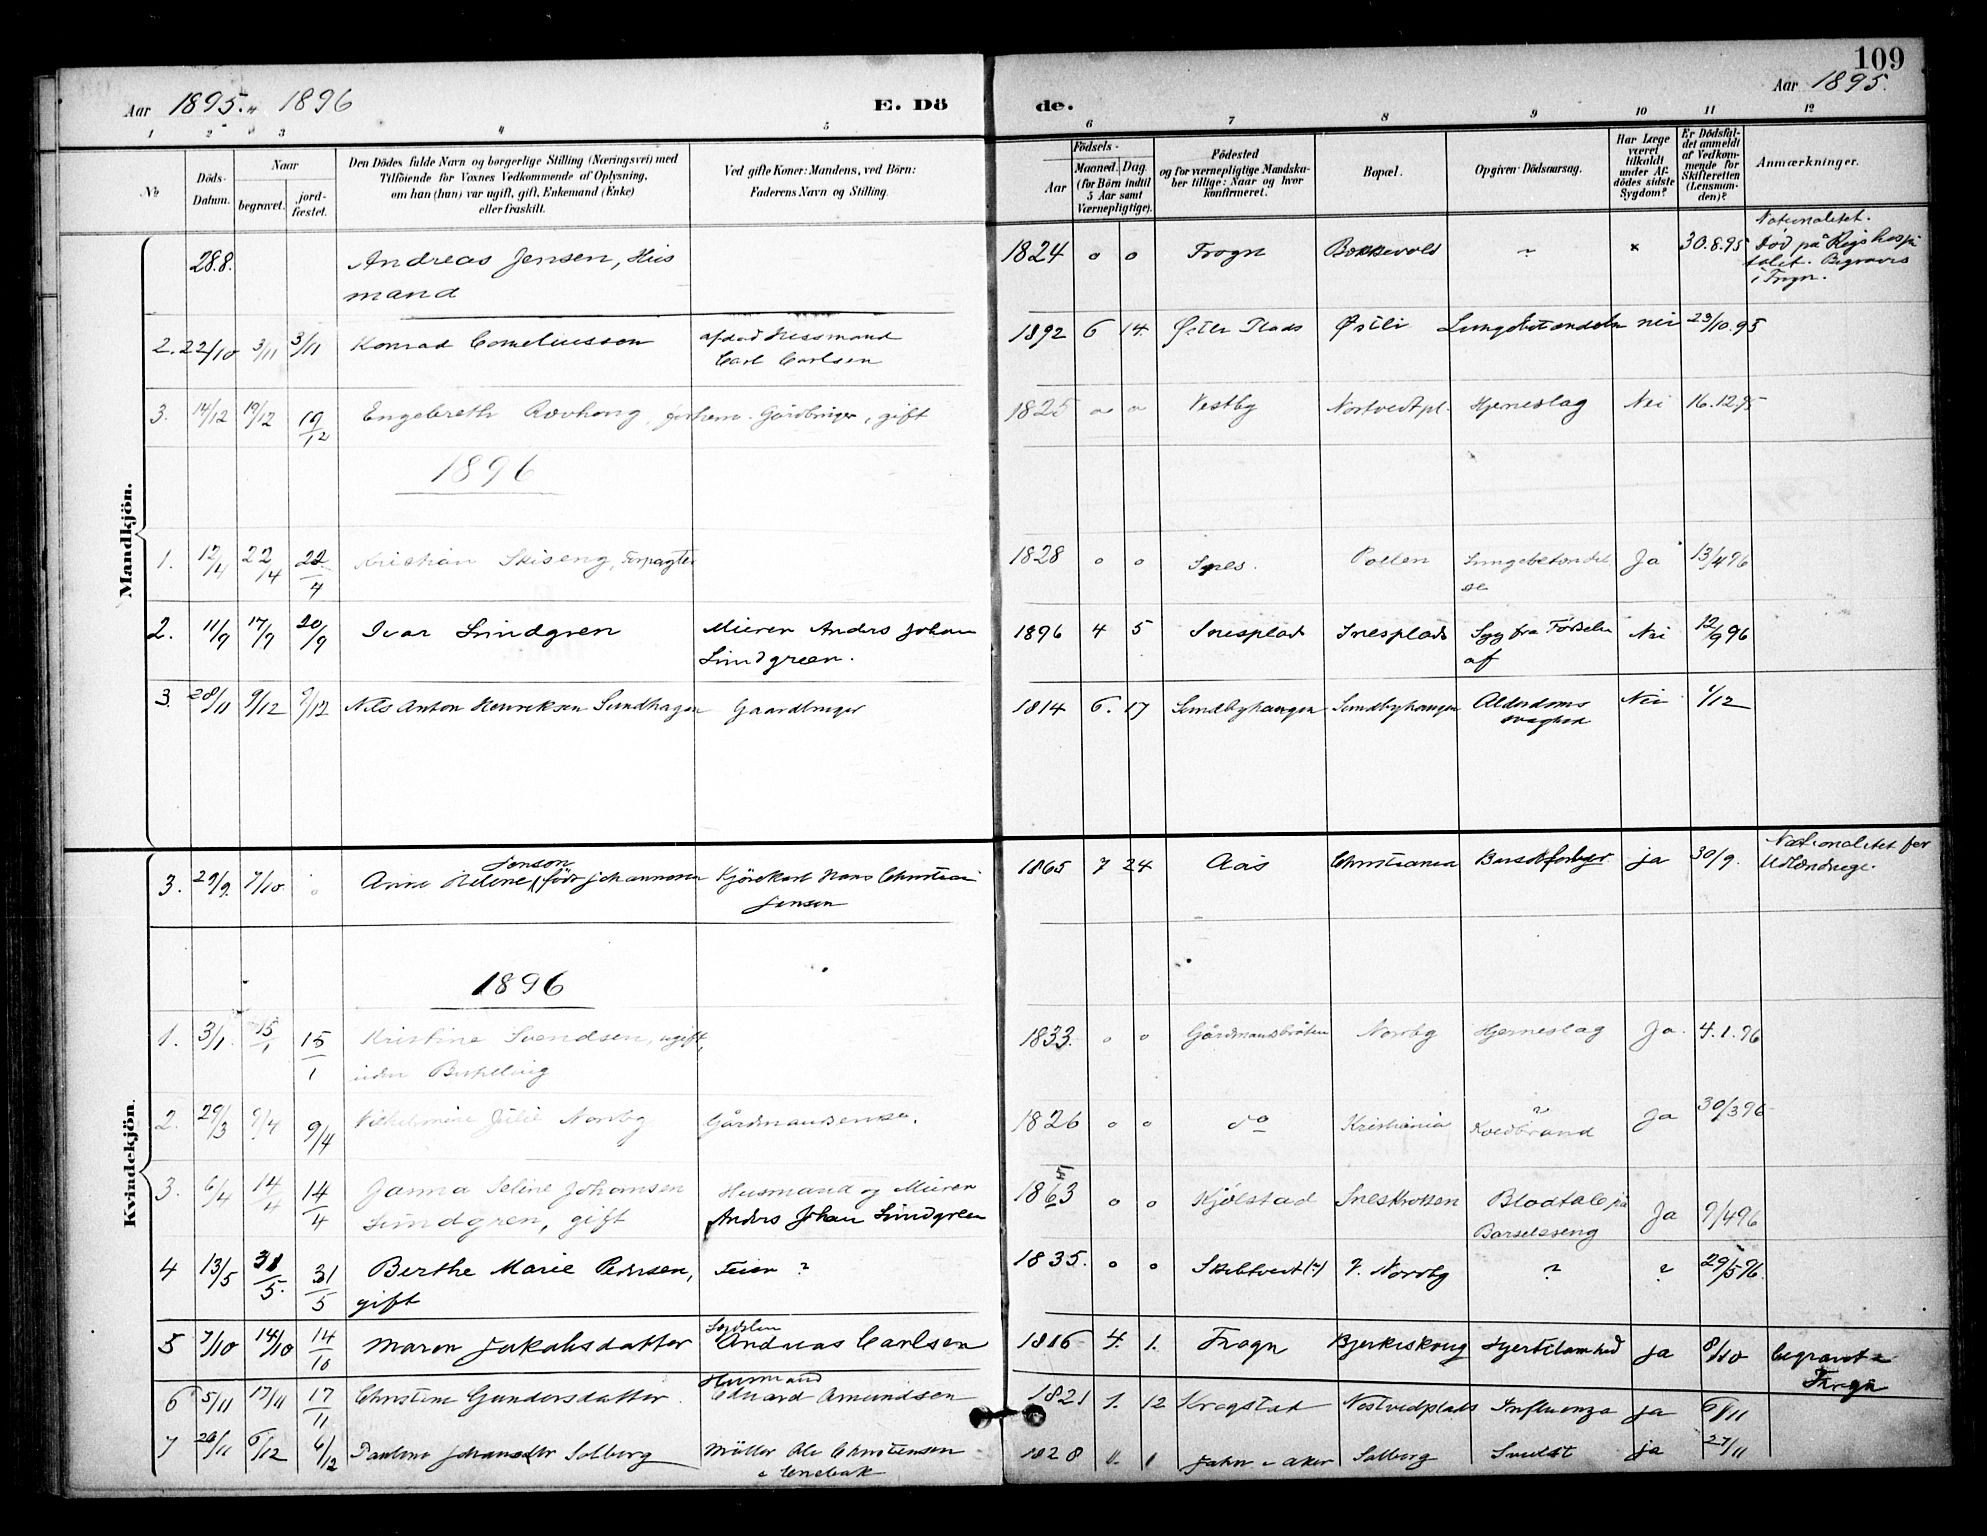 109
Aar 1895. 1896
E. Dö
de.
Aar 1895.
1 2 3 4 5 6 7 8 9 10 11 12
No
Döds-Datum.
Naar
begravet.
jord-fæstet.
Den Dödes fulde Navn og borgerlige Stilling (Næringsvei) med
Tilföiende for Voxnes Vedkommende af Oplysning,
om han (hun) var ugift, gift, Enkemand (Enke)
eller fraskilt.
Ved gifte Koner: Mandens, ved Börn:
Faderens Navn og Stilling.
Födsels-
Aar
Maaned. Dag.
(for Börn indtil
5 Aar samt
Værnepligtige).
Födested
og for værnepligtige Mandska-
ber tillige: Naar og hvor
konfirmeret.
Bopæl.
Opgiven Dödsaarsag.
Har Læge
været
tilkaldt
under Af-
dödes sidste
Sygdom?
Er Dödsfal-
det anmeldt
af Vedkom-
mende for
Skifteretten
(Lensman-
den)?
Anmærkninger.
Mandkjön.
28.8. Andreas Jensen, Hus
mand
1824 o o Frogn ~ x 30.8.95
Nationalitet.
Död på Rigshospi
talet. Begraves
i Frogn.
2. 22/10 3/11 3/11 Konrad Corneliussen
afdöd Husmand
Carl Carlsen
1892 6 14. Østli Plads Østli Lungebetændelse nei 23/10.95
3. 14/12 19/12 19/12 Engebreth Gårdbruger, gift
1825 o o Vestby Nordtvedt pl. Hjerneslag Nei 16.12.95
1896
1. 12/4 22/4 22/4 Kristian Skiseng, Forpagter
1828 o o Snes. Pollen Lungebetændel
se Ja 13/4 96
2. 11/9 17/9 20/9 Ivar Lindgren
Murer Anders Johan
Lindgreen.
1896 4 5 Snesplads Snesplads Syg fra Fødselen
af Nei 12/9 96
3. 28/11 9/12 9/12 Nils Anton Henriksen Sundhagen Gaardbruger
1814 6. 17 Sundbyhaugen Sundbyhaugen Alderdoms
svaghed Nei 1/12
Kvindekjön.
3. 29/9. 7/10 o Jensen
Anne Helene (född Johannesen
Kjörekarl Hans Christian
Jensen
1865 7 24 Aas Christiania ja 30/9.
Nationalitet for
Udlændinge.
1896
1. 3/1. 15/1 15/1 Kristine Svendsen, ugift,
uden
1833. o o Gårdmandsbråten Nordby Hjerneslag Ja. 4.1.96
2. 29/3 9/4 9/4 Vilhelmine Julie Nordby Gårdmandsenke.
1826 o o do Kristiania ~
Koldbrand Ja 30/3 96
3. 6/4 14/4 14/4 Janna Seline Johansen
Lindgren, gift
Husmand og Murer
Anders Johan Lindgreen
1863 5 o o Kjölstad Sneskrokken Blodtab på
Barselseng Ja 9/4 96
4 13/5 31/5. 31/5 Berthe Marie Pedersen,
gift
Feier ?
1835. o o Skibtvedt (?) V. Nordby ? ? 29/5 96.
5 7/10 14/10 14/10 Maren Jakobsdatter
Andreas Carlsen
1816 4. 1. Frogn Bjerkeskoug Hjertelamhed ja 8/10 begravet i
Frogn
6 5/11 17/11 17/11 Christine Gundersdatter
Husmand
Eduard Amundsen
1821 1. 12 Kragstad Nostvedplads Influenza ja 6/11
7 26/11 6/12 6/12 Pauline Johansdtr Solberg
Möller Ole Christensen
i Enebak
1828 11. 1 i Aker Solberg ja 27/11